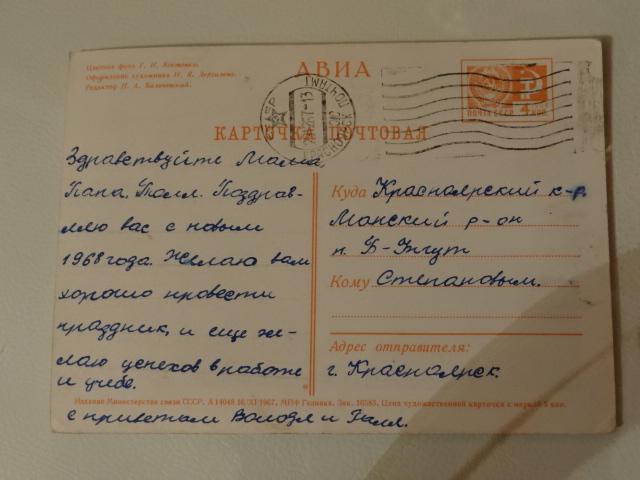 Цветное фото Г. И. Костенко.
Оформление художника
Редактор Н. А.
АВИА
ПОЧТА СССР 4 КОП.
КАРТОЧКА ПОЧТОВАЯ
Здравствуйте Мама
Папа, Галя. Поздрав-
ляю вас с новым
1968 года. Желаю вам
хорошо провести
праздник, и еще же-
лаю успехов в работе
и учебе.
с приветам Володя и Галя.
Куда Красноярский к-р.
Манский р-он
п.
Кому Степановым.
Адрес отправителя:
г. Красноярск.
Издание Министерства связи СССР. А 14048 16/XI 1967. МПФ Гознака. Зак. 10583. Цена художественной карточки с маркой 5 коп.